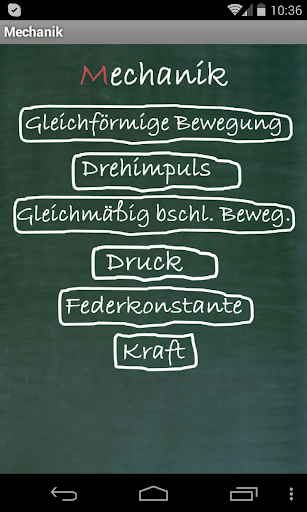 10:36
Mechanik
Mechanik
Gleichförmige Bewegung
Drehimpuls
Gleichmäßig bschl. Beweg.
Druck
Federkonstante
Kraft